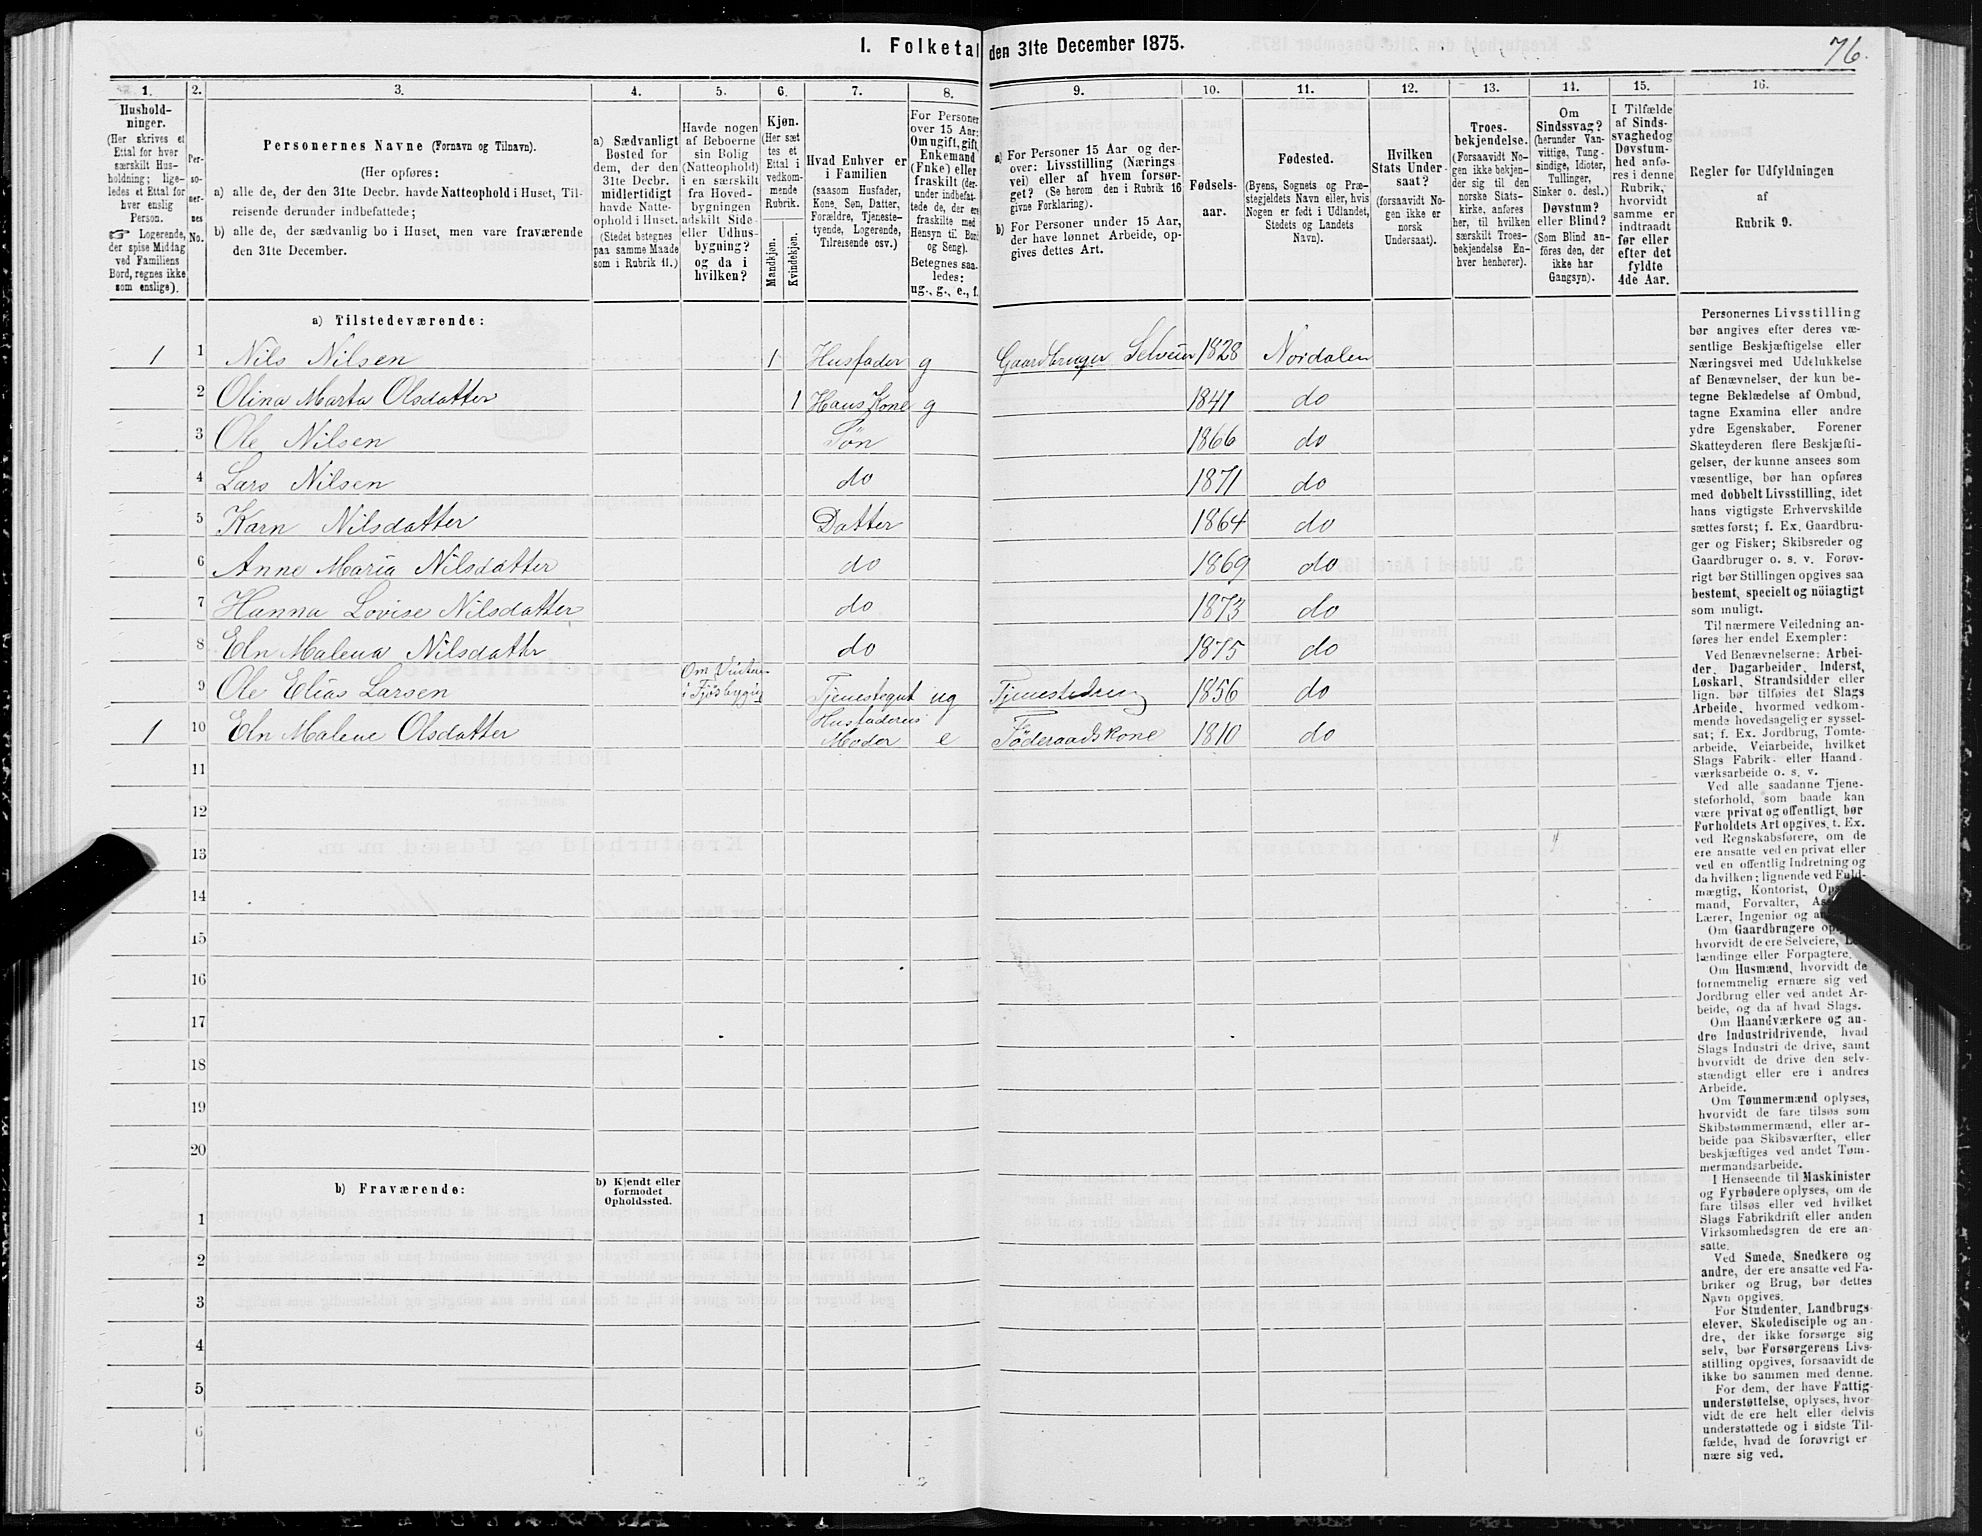 I. Folketal den 31te December 1875.
76.
1. 2. 3. 4. 5. 6. 7. 8. 9. 10. 11. 12. 13. 14. 15. 16.
Hushold-
ninger.
(Her skrives et
Ettal for hver
særskilt Hus-
holdning; lige-
ledes et Ettal for
hver enslig
Person.
☞ Logerende,
der spise Middag
ved Familiens
Bord, regnes ikke
som enslige).
Per-
so-
ner-
nes
No.
Personernes Navne (Fornavn og Tilnavn).
(Her opføres:
a) alle de, der den 31te Decbr. havde Natteophold i Huset, Til-
reisende derunder indbefattede;
b) alle de, der sædvanlig bo i Huset, men vare fraværende
den 31te December.
a) Sædvanligt
Bosted for
dem, der den
31te Decbr.
midlertidigt
havde Natte-
ophold i Huset.
(Stedet betegnes
paa samme Maade
som i Rubrik 11.)
Havde nogen
af Beboerne
sin Bolig
(Natteophold)
i en særskilt
fra Hoved-
bygningen
adskilt Side-
eller Udhus-
bygning?
og da i
hvilken?
Kjøn.
(Her sæt-
tes et
Ettal i
vedkom-
mende
Rubrik.
Mandkjøn.
Kvindekjøn.
Hvad Enhver er
i Familien
(saasom Husfader,
Kone, Søn, Datter,
Forældre, Tjeneste-
tyende, Logerende,
Tilreisende osv.)
For Personer
over 15 Aar:
Om ugift, gift,
Enkemand
(Enke) eller
fraskilt (der-
under indbefat-
tede de, der ere
fraskilte med
Hensyn til Bord
og Seng).
Betegnes saa-
ledes:
ug., g., e., f.
a) For Personer 15 Aar og der-
over: Livsstilling (Nærings-
vei) eller af hvem forsør-
get? (Se herom den i Rubrik 16
givne Forklaring).
b) For Personer under 15 Aar,
der have lønnet Arbeide, op-
gives dettes Art.
Fødsels-
aar.
Fødested.
(Byens, Sognets og Præ-
stegjeldets Navn eller, hvis
Nogen er født i Udlandet,
Stedets og Landets
Navn).
Hvilken
Stats Under-
saat?
(forsaavidt No-
gen ikke er
norsk
Undersaat).
Troes-
bekjendelse.
(Forsaavidt No-
gen ikke bekjen-
der sig til den
norske Stats-
kirke, anføres
her, til hvilken
særskilt Troes-
bekjendelse En-
hver henhører).
Om
Sindssvag?
(herunder Van-
vittige, Tung-
sindige, Idioter,
Tullinger,
Sinker o. desl.)
Døvstum?
eller Blind?
(Som Blind an-
føres den, der
ikke har
Gangsyn).
I Tilfælde
af Sinds-
svaghedog
Døvstum-
hed anfø-
res i denne
Rubrik,
hvorvidt
samme er
indtraadt
før eller
efter det
fyldte
4de Aar.
Regler før Udfyldningen
af
Rubrik 9.
a) Tilstedeværende:
1 1 Nils Nilsen 1 Husfader g Gaardbruger Selveier 1828 Nordalen
2 Olina Marta Olsdatter 1 Hans Kone g 1841 do
3 Ole Nilsen Søn 1866 do
4 Lars Nilsen do 1871 do
5 Karn Nilsdatter Datter 1864 do
6 Anne Maria Nilsdatter do 1869 do
7 Hanna Lovise Nilsdatter do 1873 do
8 Eln Malena Nilsdatter do 1875 do
9 Ole Elias Larsen Om Vinteren i Fjøsbygng Tjenestegut ug 1856 do
1 10 Eln Malene Olsdatter Husfaderens Moder e Føderaadskone 1810 do
11
12
13
14
15
16
17
18
19
20
b) Fraværende:
b) Kjendt eller
formodet
Opholdssted.
1
2
3
4
5
6
Personernes Livsstilling
bør angives efter deres væ-
sentlige Beskjæftigelse eller
Næringsvei med Udelukkelse
af Benævnelser, der kun be-
tegne Beklædelse af Ombud,
tagne Examina eller andre
ydre Egenskaber. Forener
Skatteyderen flere Beskjæfti-
gelser, der kunne ansees som
væsentlige, bør han opføres
med dobbelt Livsstilling, idet
hans vigtigste Erhvervskilde
sættes først; f. Ex. Gaardbru-
ger og Fisker; Skibsreder og
Gaardbruger o. s. v. Forøv-
rigt bør Stillingen opgives saa
bestemt, specielt og nöiagtigt
som muligt.
Til nærmere Veiledning an-
føres her endel Exempler:
Ved Benævnelserne: Arbei-
der, Dagarbeider, Inderst,
Løskarl, Strandsidder eller
lign. bør tilføies det Slags
Arbeide, hvormed vedkom-
mende hovedsagelig er syssel-
sat; f. Ex. Jordbrug, Tomte-
arbeide, Veiarbeide, hvilket
Slags Fabrik- eller Haand-
værksarbeide o. s. v.
Ved alle saadanne Tjene-
steforhold, som baade kan
være privat og offentligt, bør
Forholdets Art opgives, t. Ex.
ved Regnskabsførere, om de
ere ansatte ved en privat eller
ved en offentlig Indretning og
da hvilken; lignende ved Fuld-
mægtig, Kontorist,
mand, Forvalter,
Lærer, Ingeniør og
Om Gaardbrugere
hvorvidt de ere Selveiere,
lændinge eller Forpagtere.
Om Husmænd, hvorvidt de
fornemmelig ernære sig ved
Jordbrug eller ved andet Ar-
beide, og da af hvad Slags.
Om Haandværkere og an-
dre Industridrivende, hvad
Slags Industri de drive, samt
hvorvidt de drive den selv-
stændigt eller ere i andres
Arbeide.
Om Tømmermænd oplyses,
hvorvidt de fare tilsøs som
Skibstømmermænd, eller ar-
beide paa Skibsværfter, eller
beskjæftiges ved andet Tøm-
mermandsarbeide.
I Henseende til Maskinister
og Fyrbødere oplyses, om de
fare tilsøs eller ved hvilket
Slags Fabrikdrift eller anden
Virksomhedsgren de ere an-
satte.
Ved Smede, Snedkere og
andre, der ere ansatte ved Fa-
briker og Brug, bør dettes
Navn opgives.
For Studenter, Landbrugs-
elever, Skoledisciple og an-
dre, der ikke forsørge sig
selv, bør Forsørgerens Livs-
stilling opgives, forsaavidt de
ikke bo sammen med denne.
For dem, der have Fattig-
understøttelse, oplyses, hvor-
vidt de ere helt eller delvis
understøttede og i sidste Til-
fælde, hvad de forøvrigt er-
nære sig ved.